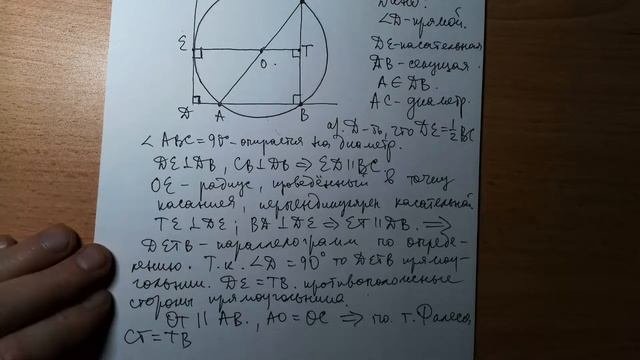 Дано:
∠D-прямой.
DE-касательная
DB-секущая.
A∈DB.
AC-диаметр.
E
T
O.
D
A
B
а). Д-ть, что DE=½BC
∠ABC=90°-опирается на диаметр.
DE⊥DB, CB⊥DB ⇒ ED∥BC
OE-радиус, проведённый в точку
касания, перпендикулярен касательной
TE⊥DE; BA⊥DE ⇒ ET∥DB. ⇒
DETB-параллелограмм по опреде-
лению. Т.к. ∠D=90° то DETB прямоу-
гольник. DE=TB. противоположные
стороны прямоугольника.
OT∥AB., AO=OC ⇒ по т. Фалеса
CT=TB